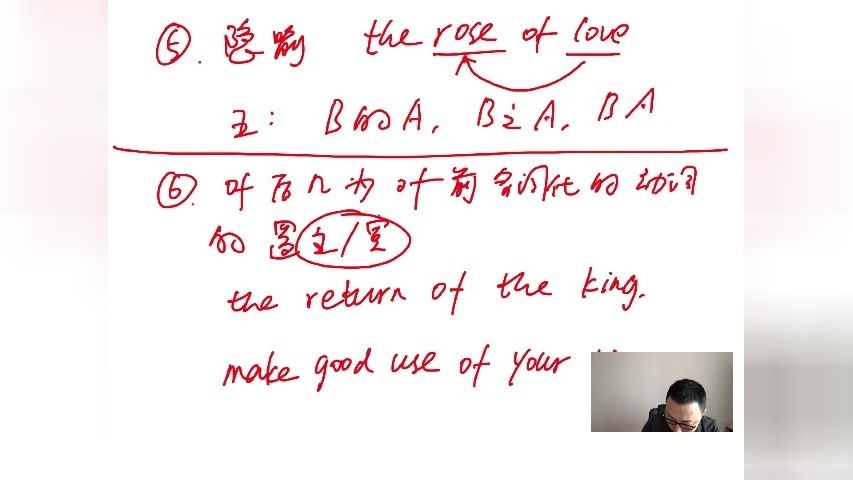 ⑤. 隐喻 the rose of love
五: B的A, B之A, BA
⑥. of 后 n 为 of 前 名词化 的 动词
的 主/宾
the return of the king.
make good use of your